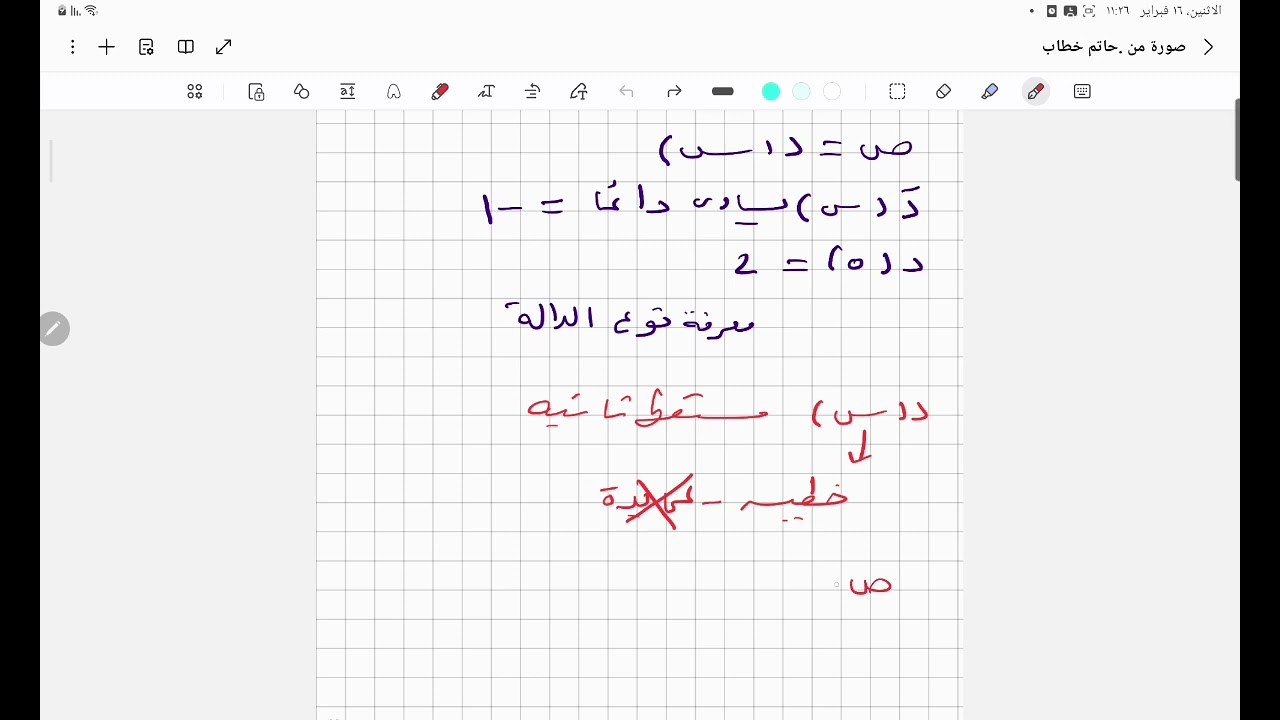 الاثنين، ١٦ فبراير ١١:٢٦
صورة من .حاتم خطاب
ص = د(س)
دَ(س) يساوى دائمًا = -١
د(٥) = 2
معرفة نوع الدالة
د(س)
خطيه -
ص